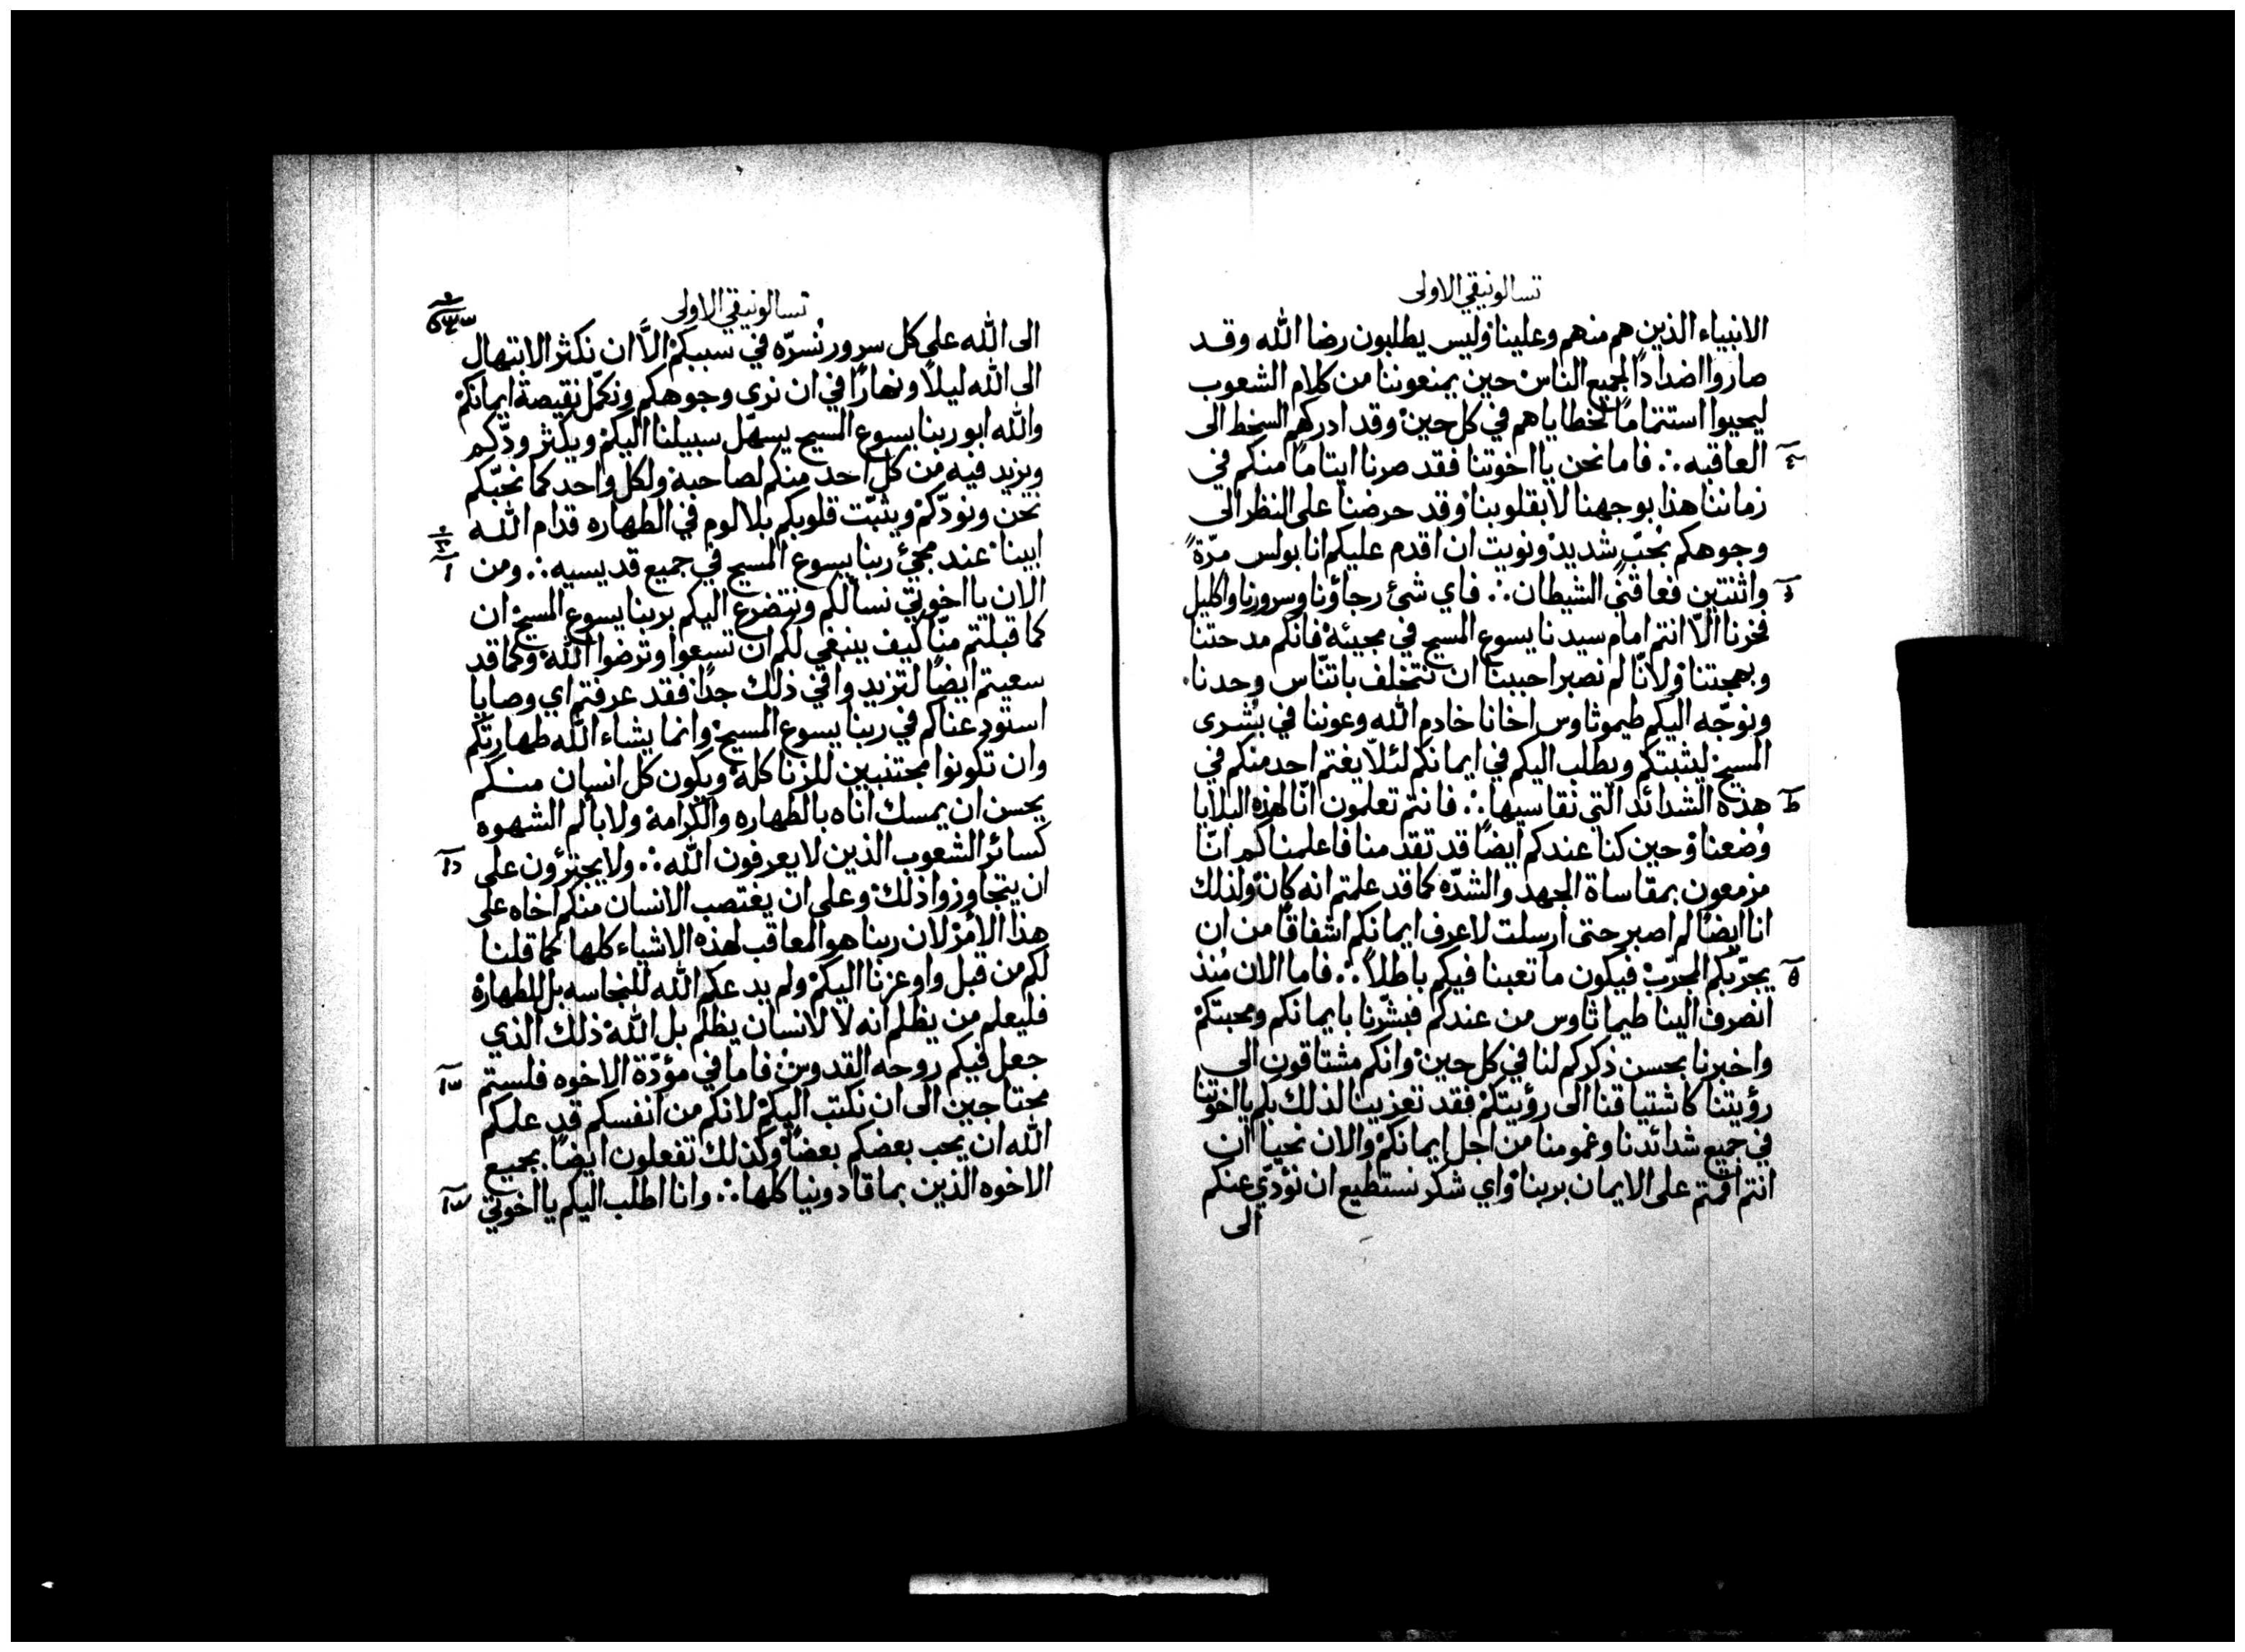 تسالونيقي الاولى
الانبياء الذين هم منهم وعلينا وليس يطلبون رضا الله وقد
صاروا اضدادًا لجميع الناس حين يمنعوننا من كلام الشعوب
ليحيوا استتمامًا لخطاياهم في كل حين وقد ادركهم السخط الى
العاقبه ∴ فاما نحن يا اخوتنا فقد صرنا ايتامًا منكم في
زماننا هذا بوجهنا لا بقلوبنا وقد حرضنا على النظر الى
وجوهكم بحُبّ شديد ونويت ان اقدم عليكم انا بولس مرّةً
واثنتين فعاقني الشيطان ∴ فاي شئ رجاؤنا وسرورنا واكليل
فخرنا الّا انتم امام سيدنا يسوع المسيح في مجيئه فانكم مدحتنا
وبهجتنا ولانّا لم نصبر احببنا ان نتخلف باتنّاس وحدنا
ونوجّه اليكم طيموثاوس اخانا خادم الله وعوننا في بُشرى
المسيح ليثبتكم ويطلب اليكم في ايمانكم لئلّا يغتم احد منكم في
هذه الشدائد التي نقاسيها ∴ فانتم تعلمون انّا لهذه البلايا
وُضعنا وحين كنا عندكم ايضًا قد تقدمنا فاعلمناكم انّا
مزمعون بمقاساة الجهد والشدّه كما قد علمتم انه كان ولذلك
انا ايضًا لم اصبر حتى ارسلت لاعرف ايمانكم اشفاقًا من ان
يجرّبكم المجرّب فيكون ما تعبنا فيكم باطلاً ∴ فاما الان مُنذ
انصرف الينا طيماثاوس من عندكم فبشّرنا بايمانكم ومحبتكم
واخبرنا بحسن ذكركم لنا في كل حين وانكم مشتاقون الى
رؤيتنا كاشتياقنا الى رؤيتكم فقد تعزينا لذلك بكم يا اخوتنا
في جميع شدائدنا وغمومنا من اجل ايمانكم والان نحيا ان
انتم اقمتم على الايمان بربنا واي شكر نستطيع ان نؤدّي عنكم
الى
تسالونيقي الاولى
الى الله على كل سرور نُسرّه في سببكم الّا ان نكثر الابتهال
الى الله ليلاً ونهارًا في ان نرى وجوهكم ونكمّل نقيصة ايمانكم
والله ابو ربنا يسوع المسيح يسهّل سبيلنا اليكم ويكثر ودّكم
ويزيد فيه من كل احد منكم لصاحبه ولكل واحد كما نحبّكم
نحن ونودّكم ويثبّت قلوبكم بلا لوم في الطهاره قدام الله
ابينا عند مجئ ربنا يسوع المسيح في جميع قديسيه ∴ ومن
الان يا اخوتي نسالكم ونتضرع اليكم بربنا يسوع المسيح ان
كما قبلتم منّا كيف ينبغي لكم ان تسعوا وترضوا الله وكما قد
سعيتم ايضًا لتزيدوا في ذلك جدًا فقد عرفتم اي وصايا
استودعناكم في ربنا يسوع المسيح وانما يشاء الله طهارتكم
وان تكونوا مجتنبين للزنا كله ويكون كل انسان منكم
يحسن ان يمسك اناه بالطهاره والكرامة ولا بالم الشهوه
كسائر الشعوب الذين لا يعرفون الله ∴ ولا يجترؤون على
ان يتجاوزوا ذلك وعلى ان يغتصب الانسان منكم اخاه على
هذا الامر لان ربنا هو المعاقب لهذه الاشياء كلها كما قلنا
لكم من قبل واوعزنا اليكم ولم يدعكم الله للنجاسه بل للطهارة
فليعلم من يظلم انه لا لانسان يظلم بل الله ذلك الذي
جعل فيكم روحه القدوس فاما في مؤدّة الاخوه فلستم
محتاجين الى ان نكتب اليكم لانكم من انفسكم قد علمكم
الله ان يحب بعضكم بعضًا وكذلك تفعلون ايضًا بجميع
الاخوه الذين بماقادونيا كلها ∴ وانا اطلب اليكم يا اخوتي